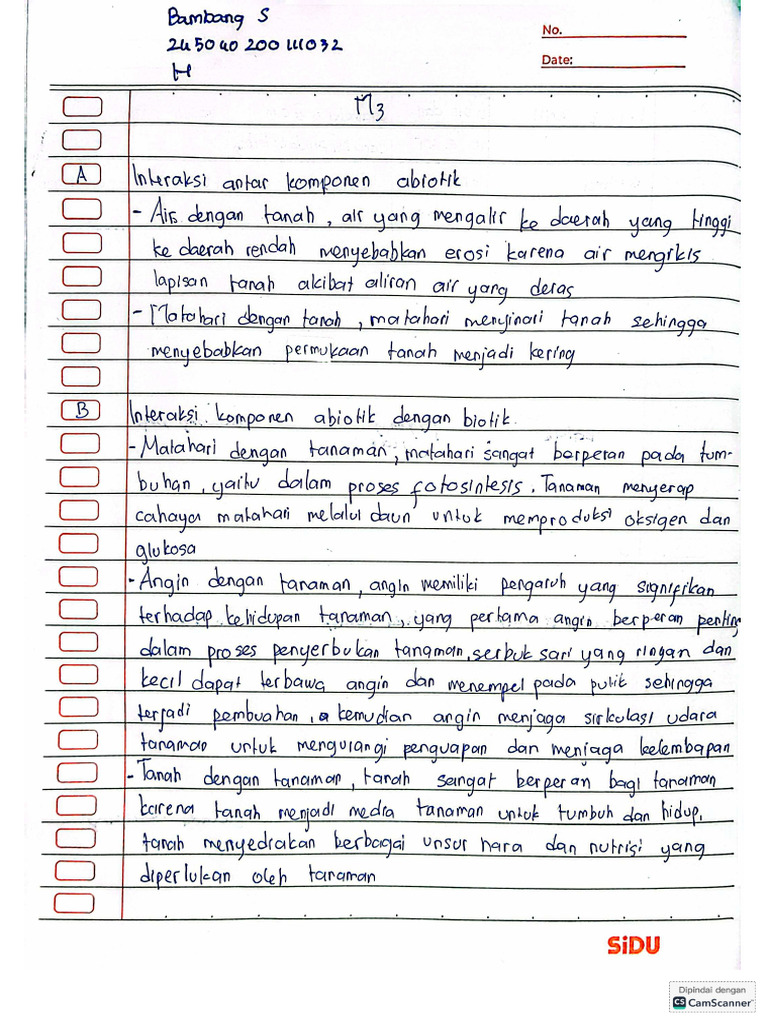 Bambang S
No.
245040200111032
Date:
H
M3
A Interaksi antar komponen abiotik
- Air dengan tanah, air yang mengalir ke daerah yang tinggi
ke daerah rendah menyebabkan erosi karena air mengikis
lapisan tanah akibat aliran air yang deras
- Matahari dengan tanah, matahari menyinari tanah sehingga
menyebabkan permukaan tanah menjadi kering
B Interaksi komponen abiotik dengan biotik
- Matahari dengan tanaman, matahari sangat berperan pada tum-
buhan, yaitu dalam proses fotosintesis. Tanaman menyerap
cahaya matahari melalui daun untuk memproduksi oksigen dan
glukosa
- Angin dengan tanaman, angin memiliki pengaruh yang signifikan
terhadap kehidupan tanaman, yang pertama angin berperan penting
dalam proses penyerbukan tanaman, serbuk sari yang ringan dan
kecil dapat terbawa angin dan menempel pada putik sehingga
terjadi pembuahan, kemudian angin menjaga sirkulasi udara
tanaman untuk mengurangi penguapan dan menjaga kelembapan
- Tanah dengan tanaman, tanah sangat berperan bagi tanaman
karena tanah menjadi media tanaman untuk tumbuh dan hidup,
tanah menyediakan berbagai unsur hara dan nutrisi yang
diperlukan oleh tanaman
SiDU
Dipindai dengan
CS CamScanner